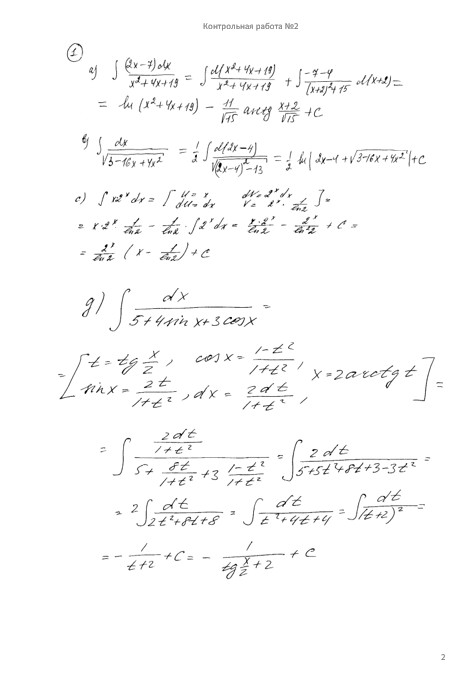 Контрольная работа №2
① а) ∫ (2x-7)dx / (x²+4x+19) = ∫ d(x²+4x+19) / (x²+4x+19) + ∫ (-7-4) / ((x+2)²+15) d(x+2) =
= ln(x²+4x+19) - 11/√15 arctg (x+2)/√15 + C
в) ∫ dx / √(3-16x+4x²) = 1/2 ∫ d(2x-4) / √((2x-4)²-13) = 1/2 ln|2x-4+√(3-16x+4x²)|+C
с) ∫ x2ˣdx = [ u = x dv = 2ˣdx
du = dx v = 2ˣ · 1/ln2 ] =
= x·2ˣ · 1/ln2 - 1/ln2 · ∫ 2ˣdx = x·2ˣ/ln2 - 2ˣ/ln²2 + C =
= 2ˣ/ln2 (x - 1/ln2) + C
д) ∫ dx / (5+4sinx+3cosx) =
= [ t = tg x/2, cosx = (1-t²)/(1+t²), x = 2arctgt
sinx = 2t/(1+t²), dx = 2dt/(1+t²), ] =
= ∫ (2dt/(1+t²)) / (5 + 8t/(1+t²) + 3 (1-t²)/(1+t²)) = ∫ 2dt / (5+5t²+8t+3-3t²) =
= 2∫ dt / (2t²+8t+8) = ∫ dt / (t²+4t+4) = ∫ dt / (t+2)² =
= - 1/(t+2) + C = - 1/(tg x/2 + 2) + C
2